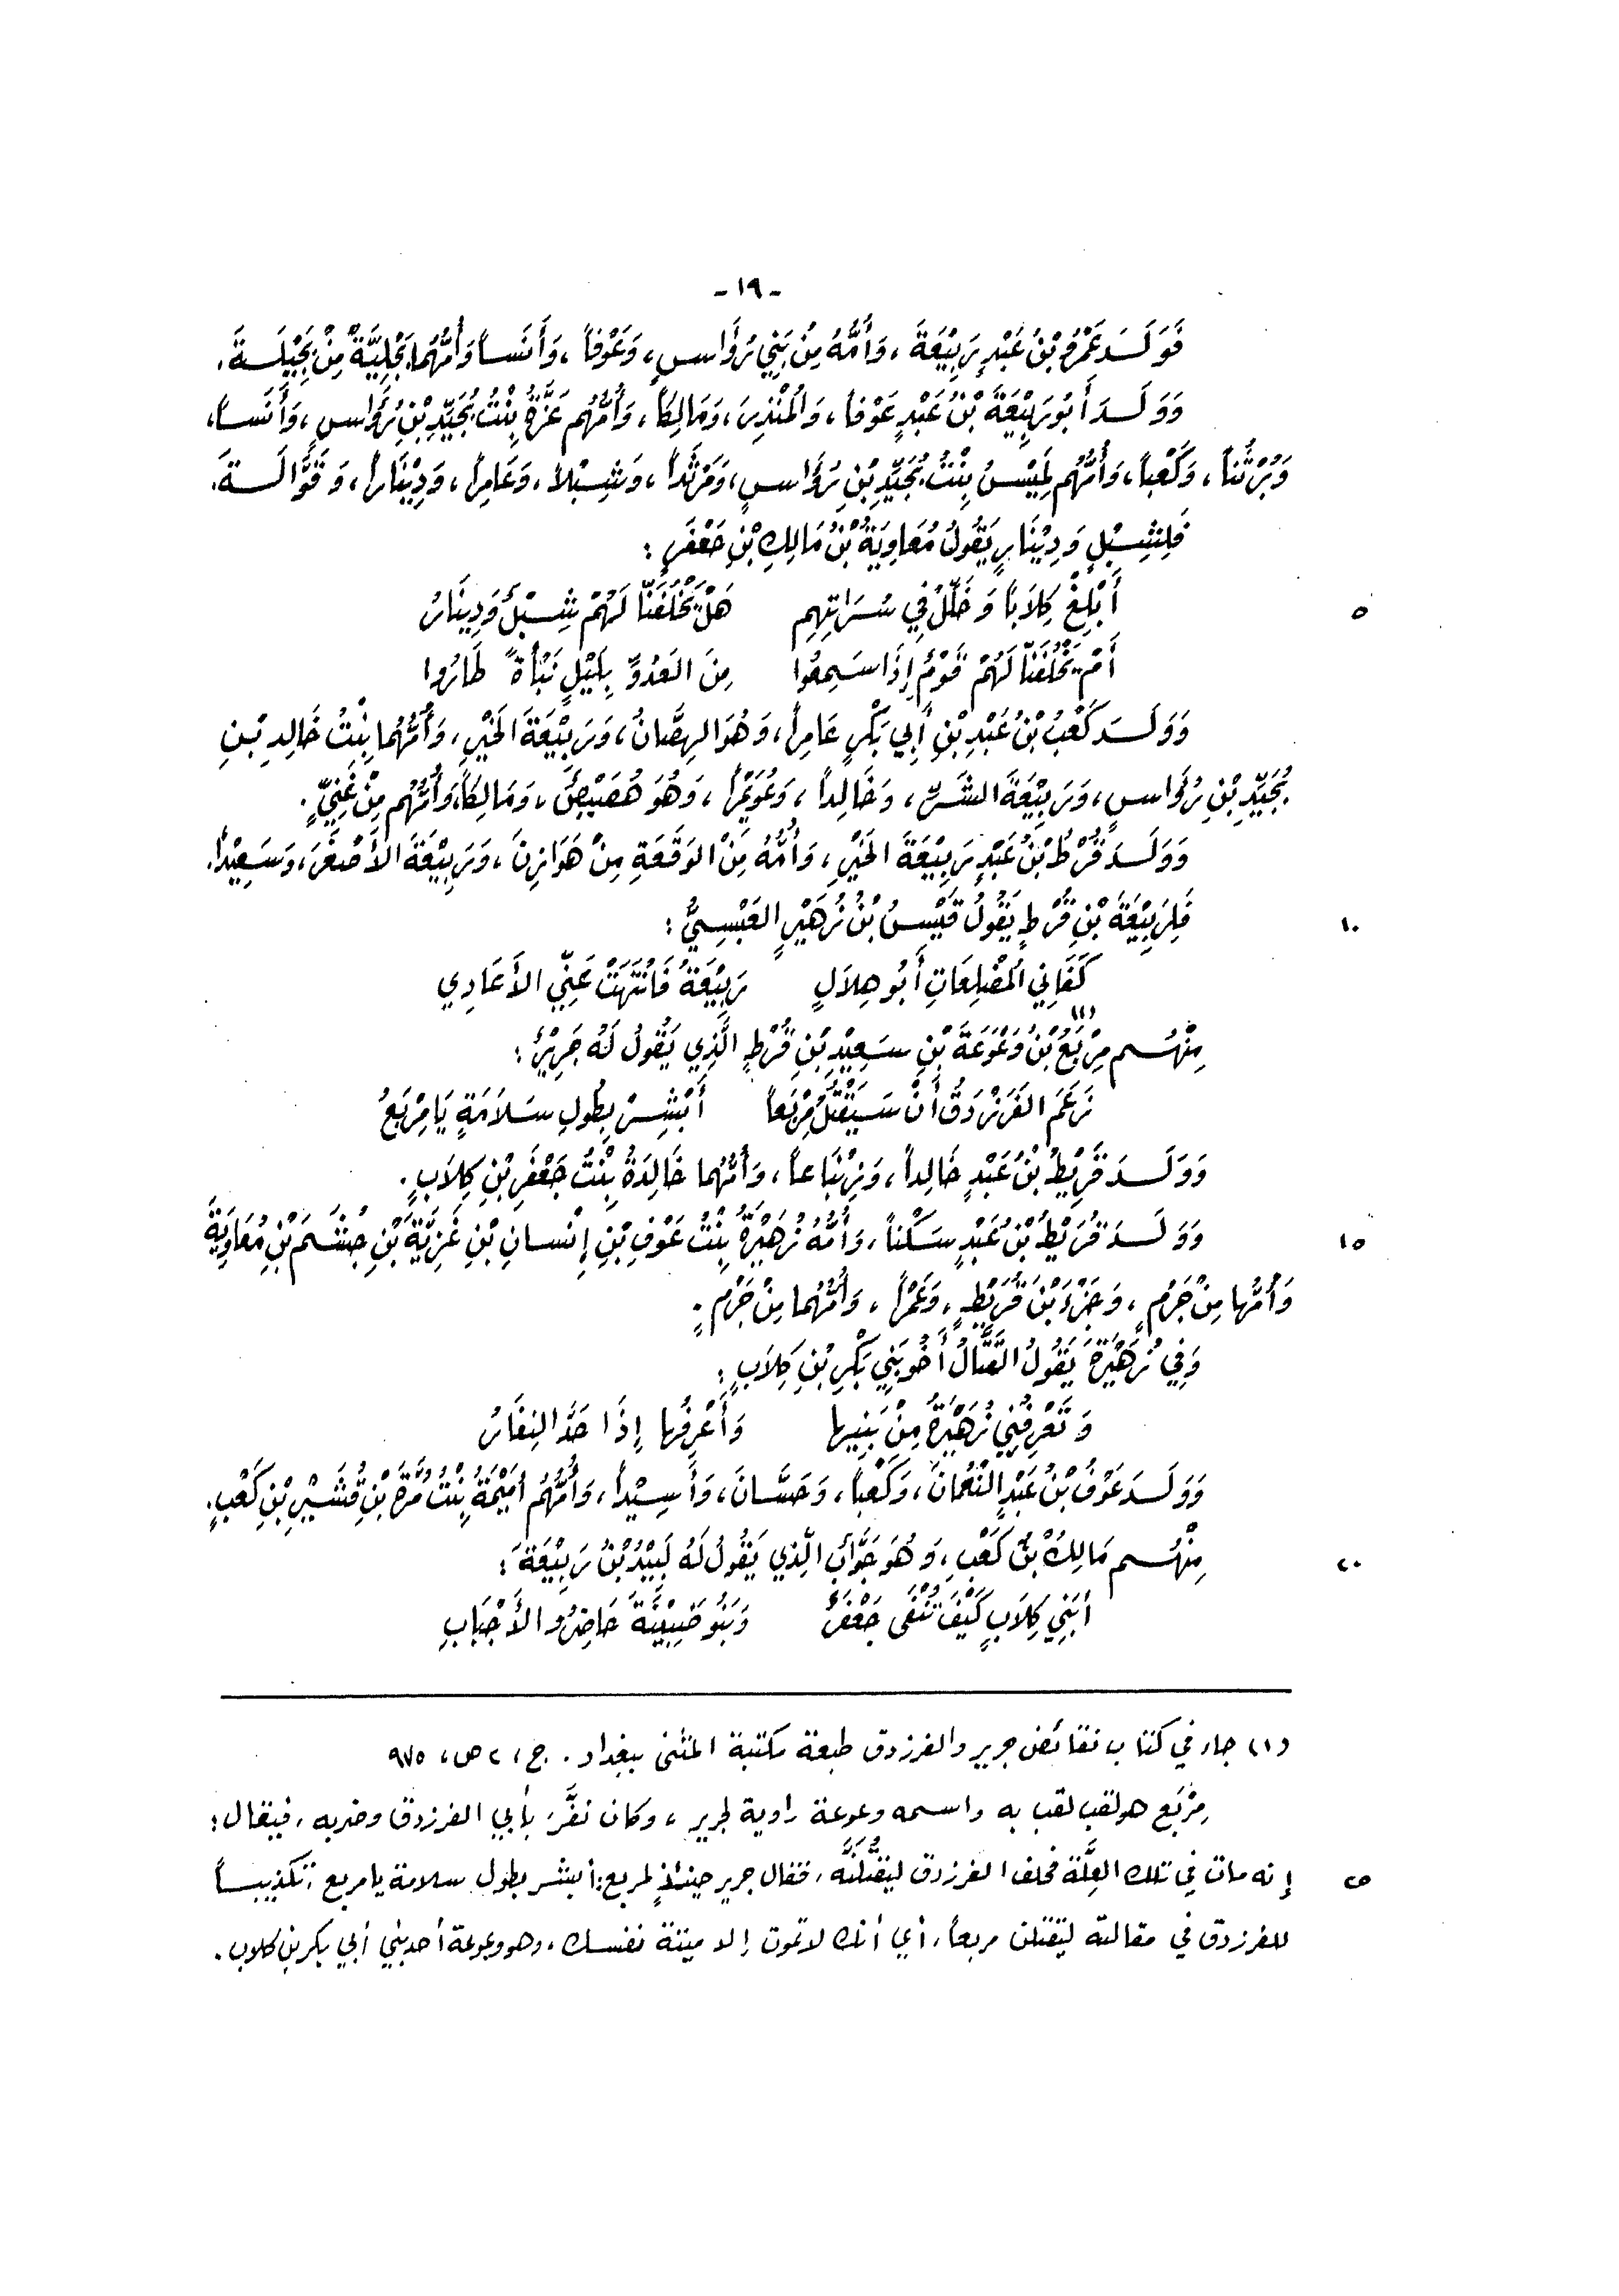 - ١٩ -
فَوَلَدَ عَمْرُو بْنُ عَبْدٍ رَبِيْعَةَ، وَأُمُّهُ مِنْ بَنِي رُؤَاسٍ، وَعَوْفاً، وَأَنَساً وَأُمُّهُمَا بَجْلِيَّةٌ مِنْ بَجِيْلَةَ.
وَوَلَدَ أَبُو رَبِيْعَةَ بْنُ عَبْدٍ عَوْفاً، وَالْمُنْذِرَ، وَمَالِكاً، وَأُمُّهُم عَزَّةُ بِنْتُ بُجَيِّدِ بْنِ رُؤَاسٍ، وَأَنَساً،
وَبُرْثُناً، وَكَعْباً، وَأُمُّهُم لَمِيْسُ بِنْتُ بُجَيِّدِ بْنِ رُؤَاسٍ، وَمَرْثَداً، وَشِبْلاً، وَعَامِراً، وَدِيْنَاراً، وَقَوَّالَةَ.
فَلِشِبْلٍ وَدِيْنَارٍ يَقُولُ مُعَاوِيَةُ بْنُ مَالِكِ بْنِ جَعْفَرٍ :
٥ أَبْلِغْ كِلَاباً وَخَلِّلْ فِي سَرَاتِهِم هَلْ يَخْلُفَنَّا لَهُمْ شِبْلٌ وَدِينَارُ
أَمْ يَخْلُفَنَّا لَهُمْ قَوْمٌ إِذَا سَمِعُوا مِنَ العَدُوِّ بِلَيْلٍ نَبْأَةً طَارُوا
وَوَلَدَ كَعْبُ بْنُ عَبْدِ بْنِ أَبِي بَكْرٍ عَامِراً، وَهُوَ الهِصَّانُ، وَرَبِيْعَةَ الخَيْرِ، وَأُمُّهُما بِنْتُ خَالِدِ بْنِ
بُجَيِّدِ بْنِ رُؤَاسٍ، وَرَبِيْعَةَ الشَّرِّ، وَخَالِداً، وَعُوَيْمِراً، وَهُوَ هُصَيْصٌ، وَمَالِكاً، وَأُمُّهُم مِنْ غَنِيٍّ.
وَوَلَدَ قُرْطُ بْنُ عَبْدٍ رَبِيْعَةَ الخَيْرِ، وَأُمُّهُ مِنْ الوَقَعَةِ مِنْ هَوَازِنَ، وَرَبِيْعَةَ الأَصْغَرَ، وَسَعِيْداً.
١٠ فَلِرَبِيْعَةَ بْنِ قُرْطٍ يَقُولُ قَيْسُ بْنُ زُهَيْرٍ العَبْسِيُّ :
كَفَانِي المُضْلِعَاتِ أَبُو هِلَالٍ رَبِيْعَةُ فَانْتَهَتْ عَنِّي الأَعَادِي
مِنْهُم مِرْبَعُ (١) بْنُ وَعْوَعَةَ بْنِ سَعِيْدِ بْنِ قُرْطٍ الَّذِي يَقُولُ لَهُ جَرِيْرٌ :
زَعَمَ الفَرَزْدَقُ أَنْ سَيَقْتُلُ مِرْبَعاً أَبْشِرْ بِطُولِ سَلَامَةٍ يَا مِرْبَعُ
وَوَلَدَ قَرِيْطُ بْنُ عَبْدٍ خَالِداً، وَزِنْبَاعاً، وَأُمُّهُما خَالِدَةُ بِنْتُ جَعْفَرِ بْنِ كِلَابٍ.
١٥ وَوَلَدَ قُرَيْطُ بْنُ عَبْدٍ سَكْناً، وَأُمُّهُ زُهَيْرَةُ بِنْتُ عَوْفِ بْنِ إِنْسانِ بْنِ غَزِيَّةَ بْنِ جُشَمَ بْنِ مُعَاوِيَةَ
وَأُمُّها مِنْ جَرْمٍ، وَجَزْءَ بْنَ قُرَيْطٍ، وَعَمْراً، وَأُمُّهُما مِنْ جَرْمٍ.
وَفِي زُهَيْرَةَ يَقُولُ القَتَّالُ أَخُو بَنِي بَكْرِ بْنِ كِلَابٍ :
وَتَعْرِفُنِي زُهَيْرَةُ مِنْ بَنِيها وَأَعْرِفُها إِذَا جَدَّ النِفَارُ
وَوَلَدَ عَوْفُ بْنُ عَبْدٍ النُّعْمَانَ، وَكَعْباً، وَحَسَّانَ، وَأَسِيْداً، وَأُمُّهُم أُمَيْمَةُ بِنْتُ مُرَّةَ بْنِ قُشَيْرِ بْنِ كَعْبٍ.
٢٠ مِنْهُم مَالِكُ بْنُ كَعْبٍ، وَهُوَ جَوَّابُ الَّذِي يَقُولُ لَهُ لَبِيْدُ بْنُ رَبِيْعَةَ :
أَبَنِي كِلَابٍ كَيْفَ تُنْفَى جَعْفَرٌ وَبَنُو ضَبِيْنَةَ حَاضِرُو الأَجْبَابِ
(١) جاء في كتاب نقائض جرير والفرزدق طبعة مكتبة المثنى ببغداد. ج، ٢ ص، ٩٧٥
مِرْبَع هو لقب لقب به واسمه وعوعة راوية لجرير، وكان نفَّر بأبي الفرزدق وضربه، فيقال:
٥ إنه مات في تلك العِلَّة فحلف الفرزدق ليقتُلَنَّه، فقال جرير حينئذٍ لمربع: أبشر بطول سلامة يا مربع: تكذيباً
للفرزدق في مقالته ليقتلن مربعاً، أي أنك لا تموت إلا ميتة نفسك، وهو وعوعة أحد بني أبي بكر بن كلاب.